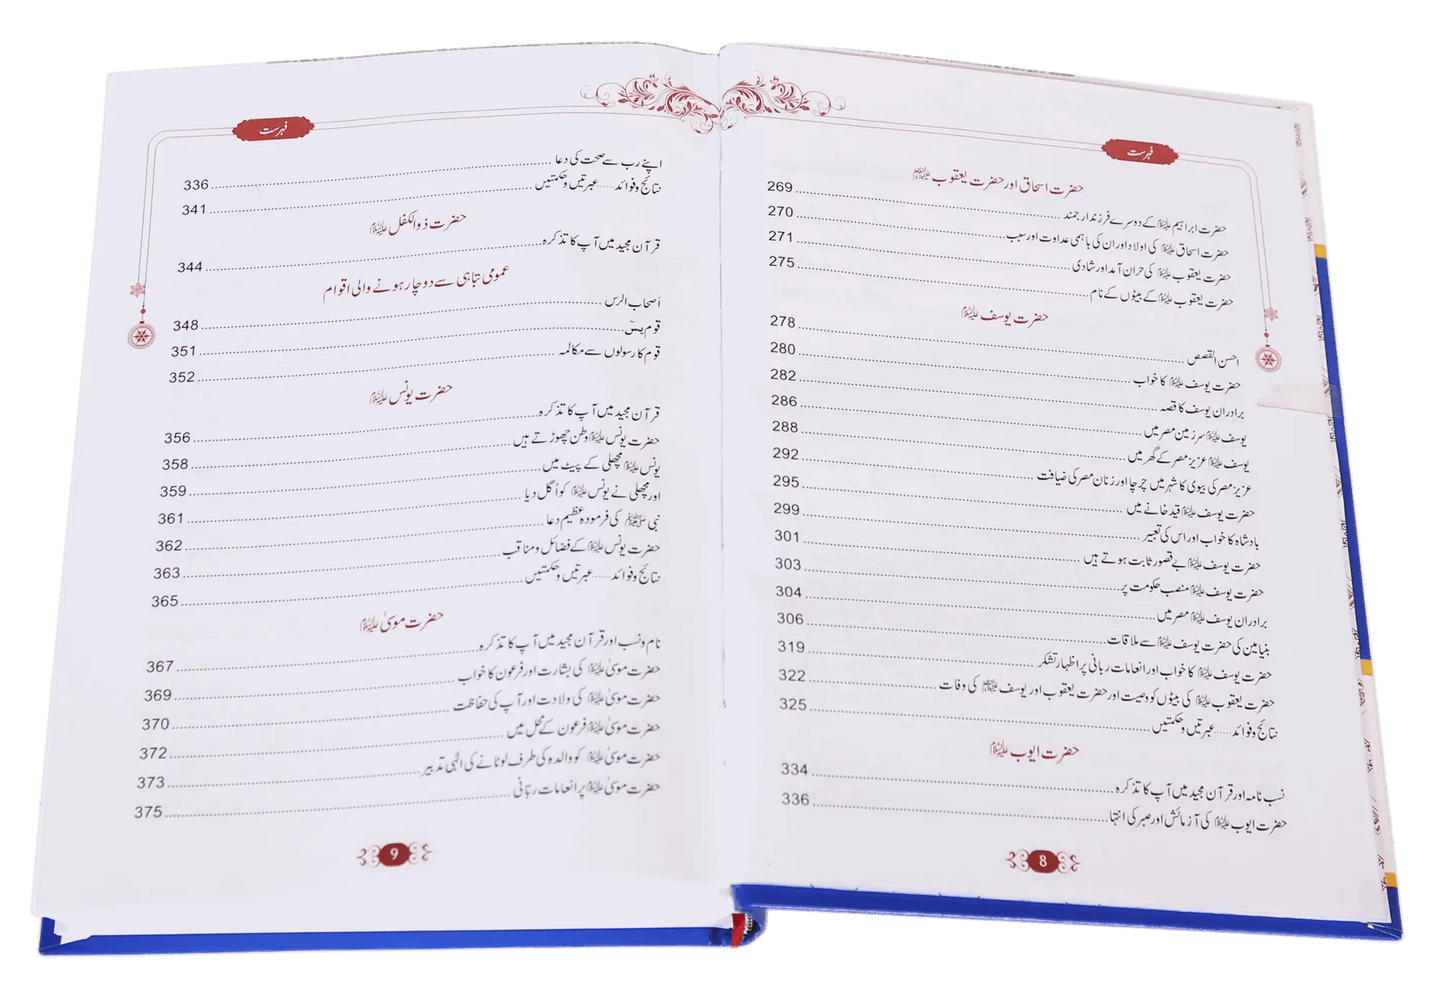 فہرست
حضرت اسحاق اور حضرت یعقوب علیہما السلام
حضرت ابراہیم علیہ السلام کے دوسرے فرزند ارجمند 269
حضرت اسحاق علیہ السلام کی اولاد اور ان کی باہمی عداوت اور سبب 270
حضرت یعقوب علیہ السلام کی حران آمد اور شادی 271
حضرت یعقوب علیہ السلام کے بیٹوں کے نام 275
حضرت یوسف علیہ السلام
احسن القصص 278
حضرت یوسف علیہ السلام کا خواب 280
برادران یوسف کا قصہ 282
یوسف علیہ السلام سرزمین مصر میں 286
یوسف علیہ السلام عزیز مصر کے گھر میں 288
عزیز مصر کی بیوی کا شہر میں چرچا اور زنان مصر کی ضیافت 292
حضرت یوسف علیہ السلام قید خانے میں 295
بادشاہ کا خواب اور اس کی تعبیر 299
حضرت یوسف علیہ السلام بے قصور ثابت ہوتے ہیں 301
حضرت یوسف علیہ السلام منصب حکومت پر 303
برادران یوسف علیہ السلام مصر میں 304
بنیامین کی حضرت یوسف علیہ السلام سے ملاقات 306
حضرت یوسف علیہ السلام کا خواب اور انعامات ربانی پر اظہار تشکر 319
حضرت یعقوب علیہ السلام کی بیٹوں کو وصیت اور حضرت یعقوب اور یوسف علیہما السلام کی وفات 322
نتائج و فوائد ..... عبرتیں و حکمتیں 325
حضرت ایوب علیہ السلام
نسب نامہ اور قرآن مجید میں آپ کا تذکرہ 334
حضرت ایوب علیہ السلام کی آزمائش اور صبر کی انتہا 336
8
فہرست
اپنے رب سے صحت کی دعا 336
نتائج و فوائد ..... عبرتیں و حکمتیں 341
حضرت ذوالکفل علیہ السلام
قرآن مجید میں آپ کا تذکرہ 344
عمومی تباہی سے دوچار ہونے والی اقوام
اصحاب الرس 348
قوم یٰسٓ 351
قوم کا رسولوں سے مکالمہ 352
حضرت یونس علیہ السلام
قرآن مجید میں آپ کا تذکرہ 356
حضرت یونس علیہ السلام وطن چھوڑتے ہیں 358
یونس علیہ السلام مچھلی کے پیٹ میں 359
اور مچھلی نے یونس علیہ السلام کو اُگل دیا 361
نبی ﷺ کی فرمودہ عظیم دعا 362
حضرت یونس علیہ السلام کے فضائل و مناقب 363
نتائج و فوائد ..... عبرتیں و حکمتیں 365
حضرت موسیٰ علیہ السلام
نام و نسب اور قرآن مجید میں آپ کا تذکرہ 367
حضرت موسیٰ علیہ السلام کی بشارت اور فرعون کا خواب 369
حضرت موسیٰ علیہ السلام کی ولادت اور آپ کی حفاظت 370
حضرت موسیٰ علیہ السلام فرعون کے محل میں 372
حضرت موسیٰ علیہ السلام کو والدہ کی طرف لوٹانے کی الٰہی تدبیر 373
حضرت موسیٰ علیہ السلام پر انعامات ربانی 375
9